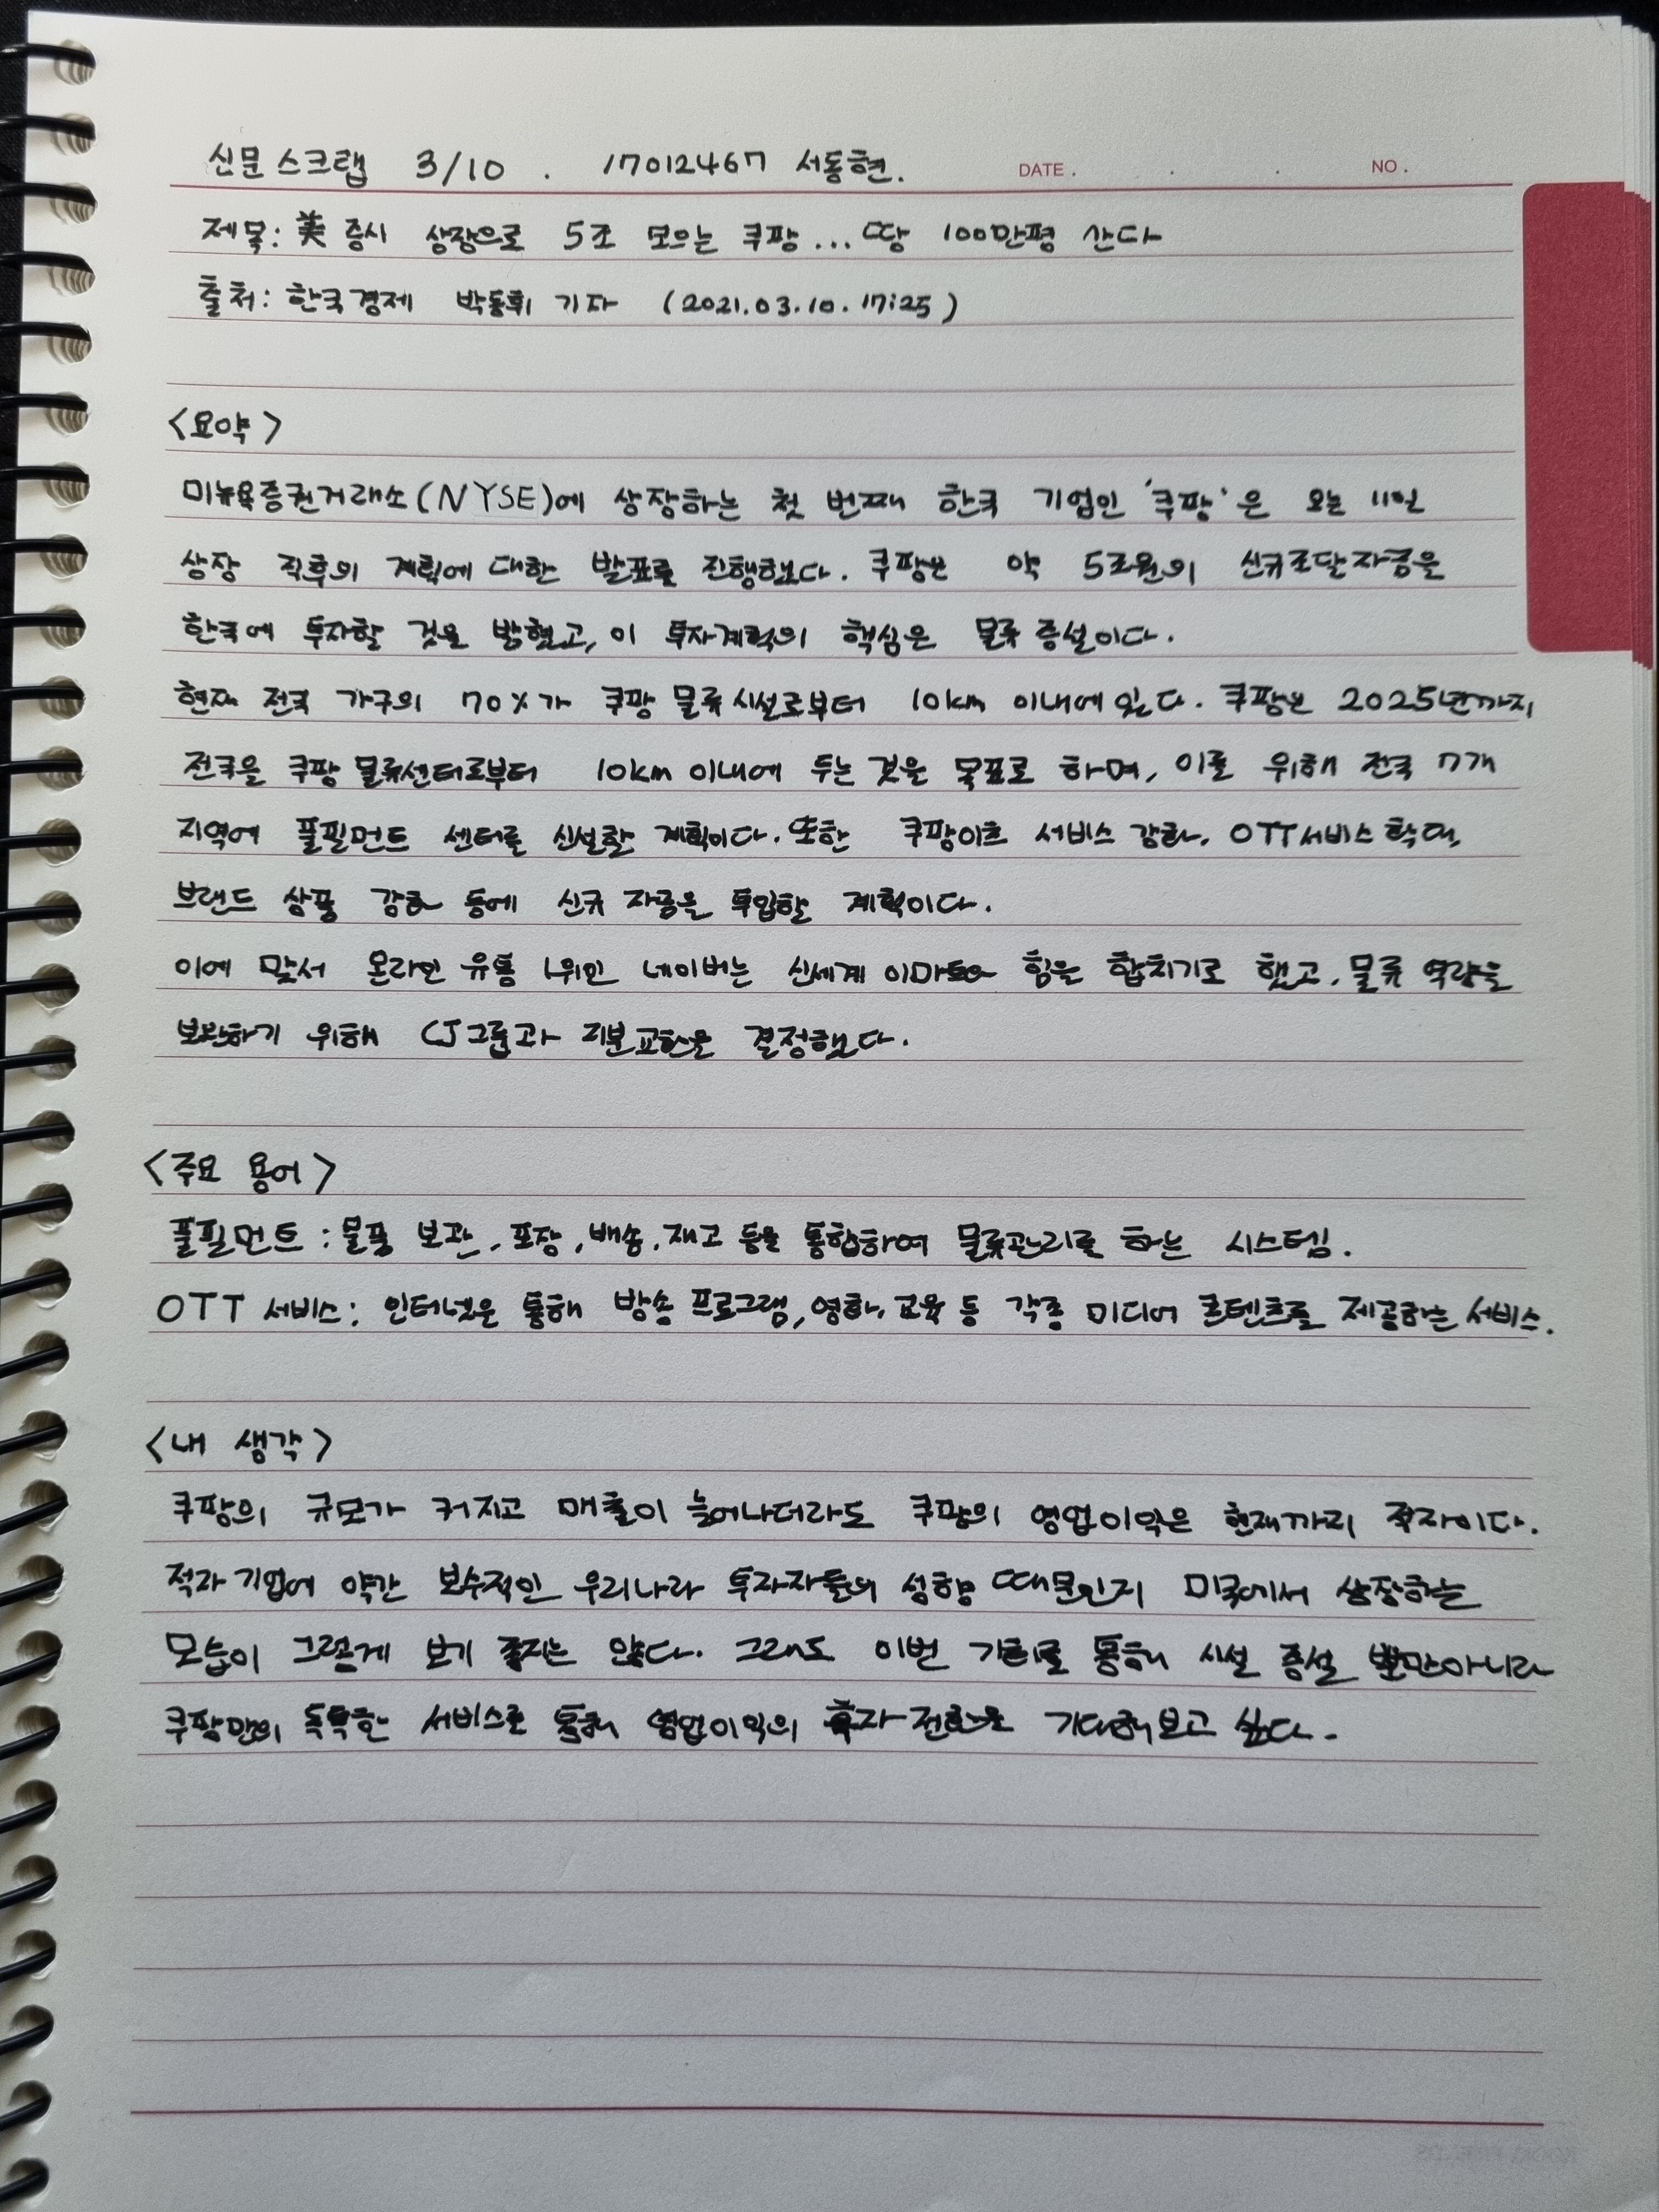 신문 스크랩 3/10 . 17012467 서동현. DATE . . . NO .
제목: 美 증시 상장으로 5조 모으는 쿠팡... 땅 100만평 산다
출처: 한국경제 박동휘 기자 (2021.03.10. 17:25)
<요약>
미뉴욕증권거래소(NYSE)에 상장하는 첫 번째 한국 기업인 '쿠팡'은 오는 11일
상장 직후의 계획에 대한 발표를 진행했다. 쿠팡은 약 5조원의 신규조달자금을
한국에 투자할 것을 밝혔고, 이 투자계획의 핵심은 물류 증설이다.
현재 전국 가구의 70%가 쿠팡 물류시설로부터 10km 이내에 있다. 쿠팡은 2025년까지
전국을 쿠팡 물류센터로부터 10km 이내에 두는 것을 목표로 하며, 이를 위해 전국 7개
지역에 풀필먼트 센터를 신설할 계획이다. 또한 쿠팡이츠 서비스 강화, OTT서비스 확대,
브랜드 상품 강화 등에 신규 자금을 투입할 계획이다.
이에 맞서 온라인 유통 1위인 네이버는 신세계 이마트와 힘을 합치기로 했고, 물류 역량을
보완하기 위해 CJ그룹과 지분교환을 결정했다.
<주요 용어>
풀필먼트 : 물품 보관, 포장, 배송, 재고 등을 통합하여 물류관리를 하는 시스템.
OTT 서비스: 인터넷을 통해 방송 프로그램, 영화, 교육 등 각종 미디어 콘텐츠를 제공하는 서비스.
<내 생각>
쿠팡의 규모가 커지고 매출이 늘어나더라도 쿠팡의 영업이익은 현재까지 적자이다.
적자 기업에 약간 보수적인 우리나라 투자자들의 성향 때문인지 미국에서 상장하는
모습이 그렇게 보기 좋지는 않다. 그래도 이번 기회를 통해 시설 증설 뿐만아니라
쿠팡만의 독특한 서비스를 통해 영업이익의 흑자 전환을 기대해보고 싶다.